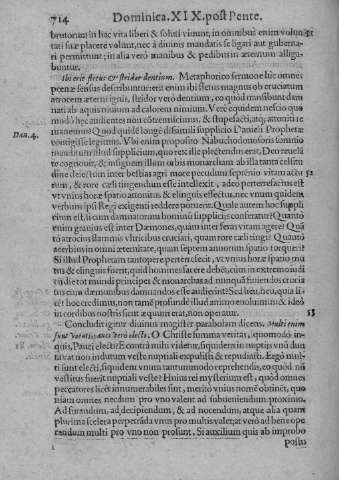 714 Dominica. XIX. post Pente.
brutorum in hac vita liberi & soluti viuunt, in omnibus enim volun 51
tati suæ placere volunt, nec à diuinis mandatis se ligari aut guberna-
ri permittunt; in alia verò manibus & pedibus in æternum alliga-
buntur.
Ibi erit fletus & stridor dentium. Metaphorico sermone hic omnes
pœnæ sensus describuntur: erit enim ibi fletus magnus ob cruciatum
atrocem æterni ignis, stridor verò dentium, eo quòd transibunt dam
nati ab aquis niuium ad calorem nimium. Verè equidem nescio quo
modò hæc audientes non cõtremiscimus, & stupefacti, atq; attoniti re
Dan. 4. manemus! Quòd quidē longè dissimili supplicio Danieli Prophetæ
contigisse legimus. Vbi enim proposito Nabuchodonosoris somnio
mandatum illud supplicium, quo rex ille plectendus erat, Deo reuelā
te cognouit, & insignem illum orbis monarcham ab illa tanta celsitu
dine deiectum inter bestias agri more pecudum septenio vitam actu 52
rum, & rore cæli tingendum esse intellexit, adeò perterrefactus est
vt vnius horæ spatio attonitus, & elinguis effectus, nec vnum quidem
verbum ipsi Regi exigenti reddere potuerit. Quale autem hoc suppli
cium est, si cum damnatorum hominũ supplicijs conferatur? Quantò
enim grauius est inter Dæmones, quàm inter feras vitam agere? Quã
tò atrocius flammis vltricibus cruciari, quam rore cæli tingi. Quantò
acerbius in omni æternitate, quam septem annorum spatio torqueri?
Si illud Prophetam tantopere perterrefecit, vt vnius horæ spatio mu
tus & elinguis fuerit, quid homines facere debẽt, cùm in extremo iudi
cij die tot mundi principes & monarchas ad nunquã finiendos crucia
tus cum dæmonibus damnandos esse audierint? Sed hèu, hèu, quia li-
cèt hoc credimus, non tamẽ profundè illud animo euoluimus, & ideò
in cordibus nostris fixum quæunt erat, non operatur. 53
Concludit igitur diuinus magister parabolam dicens. Multi enim
sunt vocati, pauci verò electi. O Christe summa veritas, quomodò in-
quis, Pauci electi? E contrà mihi videtur, siquidem in nuptijs vnũ dun
taxat non indutum veste nuptiali expulisti & repudiasti. Ergò mul-
ti sunt electi, siquidem vnum tantummodò reprehendis, eo quòd nũ
vestitus fuerit nuptiali veste? Huius rei mysterium est, quòd omnes
peccatores licèt innumerabiles sint, meritò vnius nomẽ obtinẽt, quo
niam omnes necdum pro vno valent ad subueniendum proximo.
Ad furandum, ad decipiendum, & ad nocendum, atque alia quam
plurima scelera perpetrãda vnus pro multis valet; at verò ad bene ope
randum multi pro vno non prosunt. Si auxilium quis ab improbo
postu